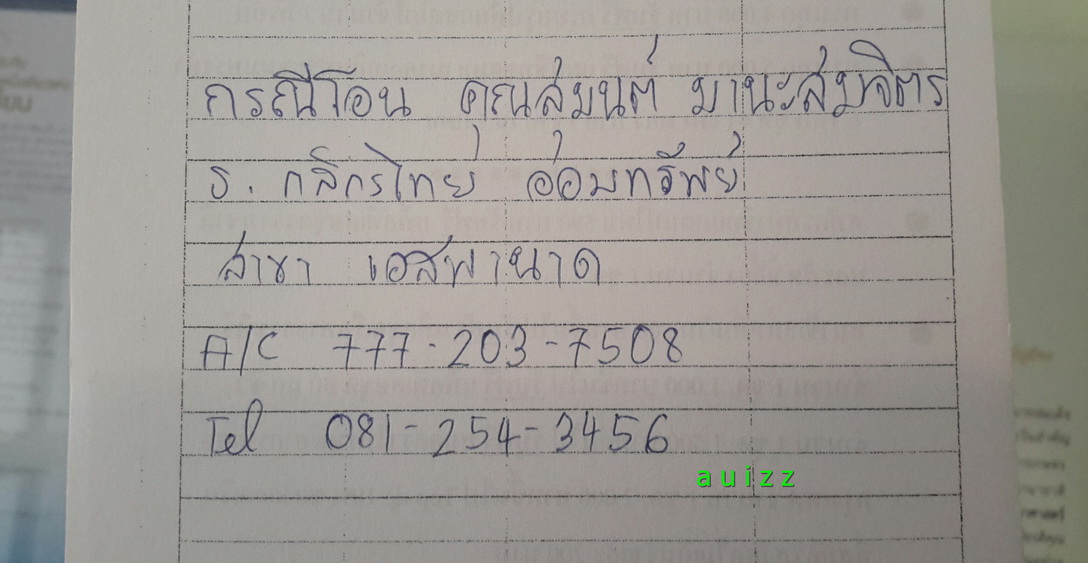 กรณีโอน คุณสุมนต์ มานะสมจิตร
ธ. กสิกรไทย ออมทรัพย์
สาขา เอสพานาด
A/C 777-203-7508
Tel 081-254-3456
auizz